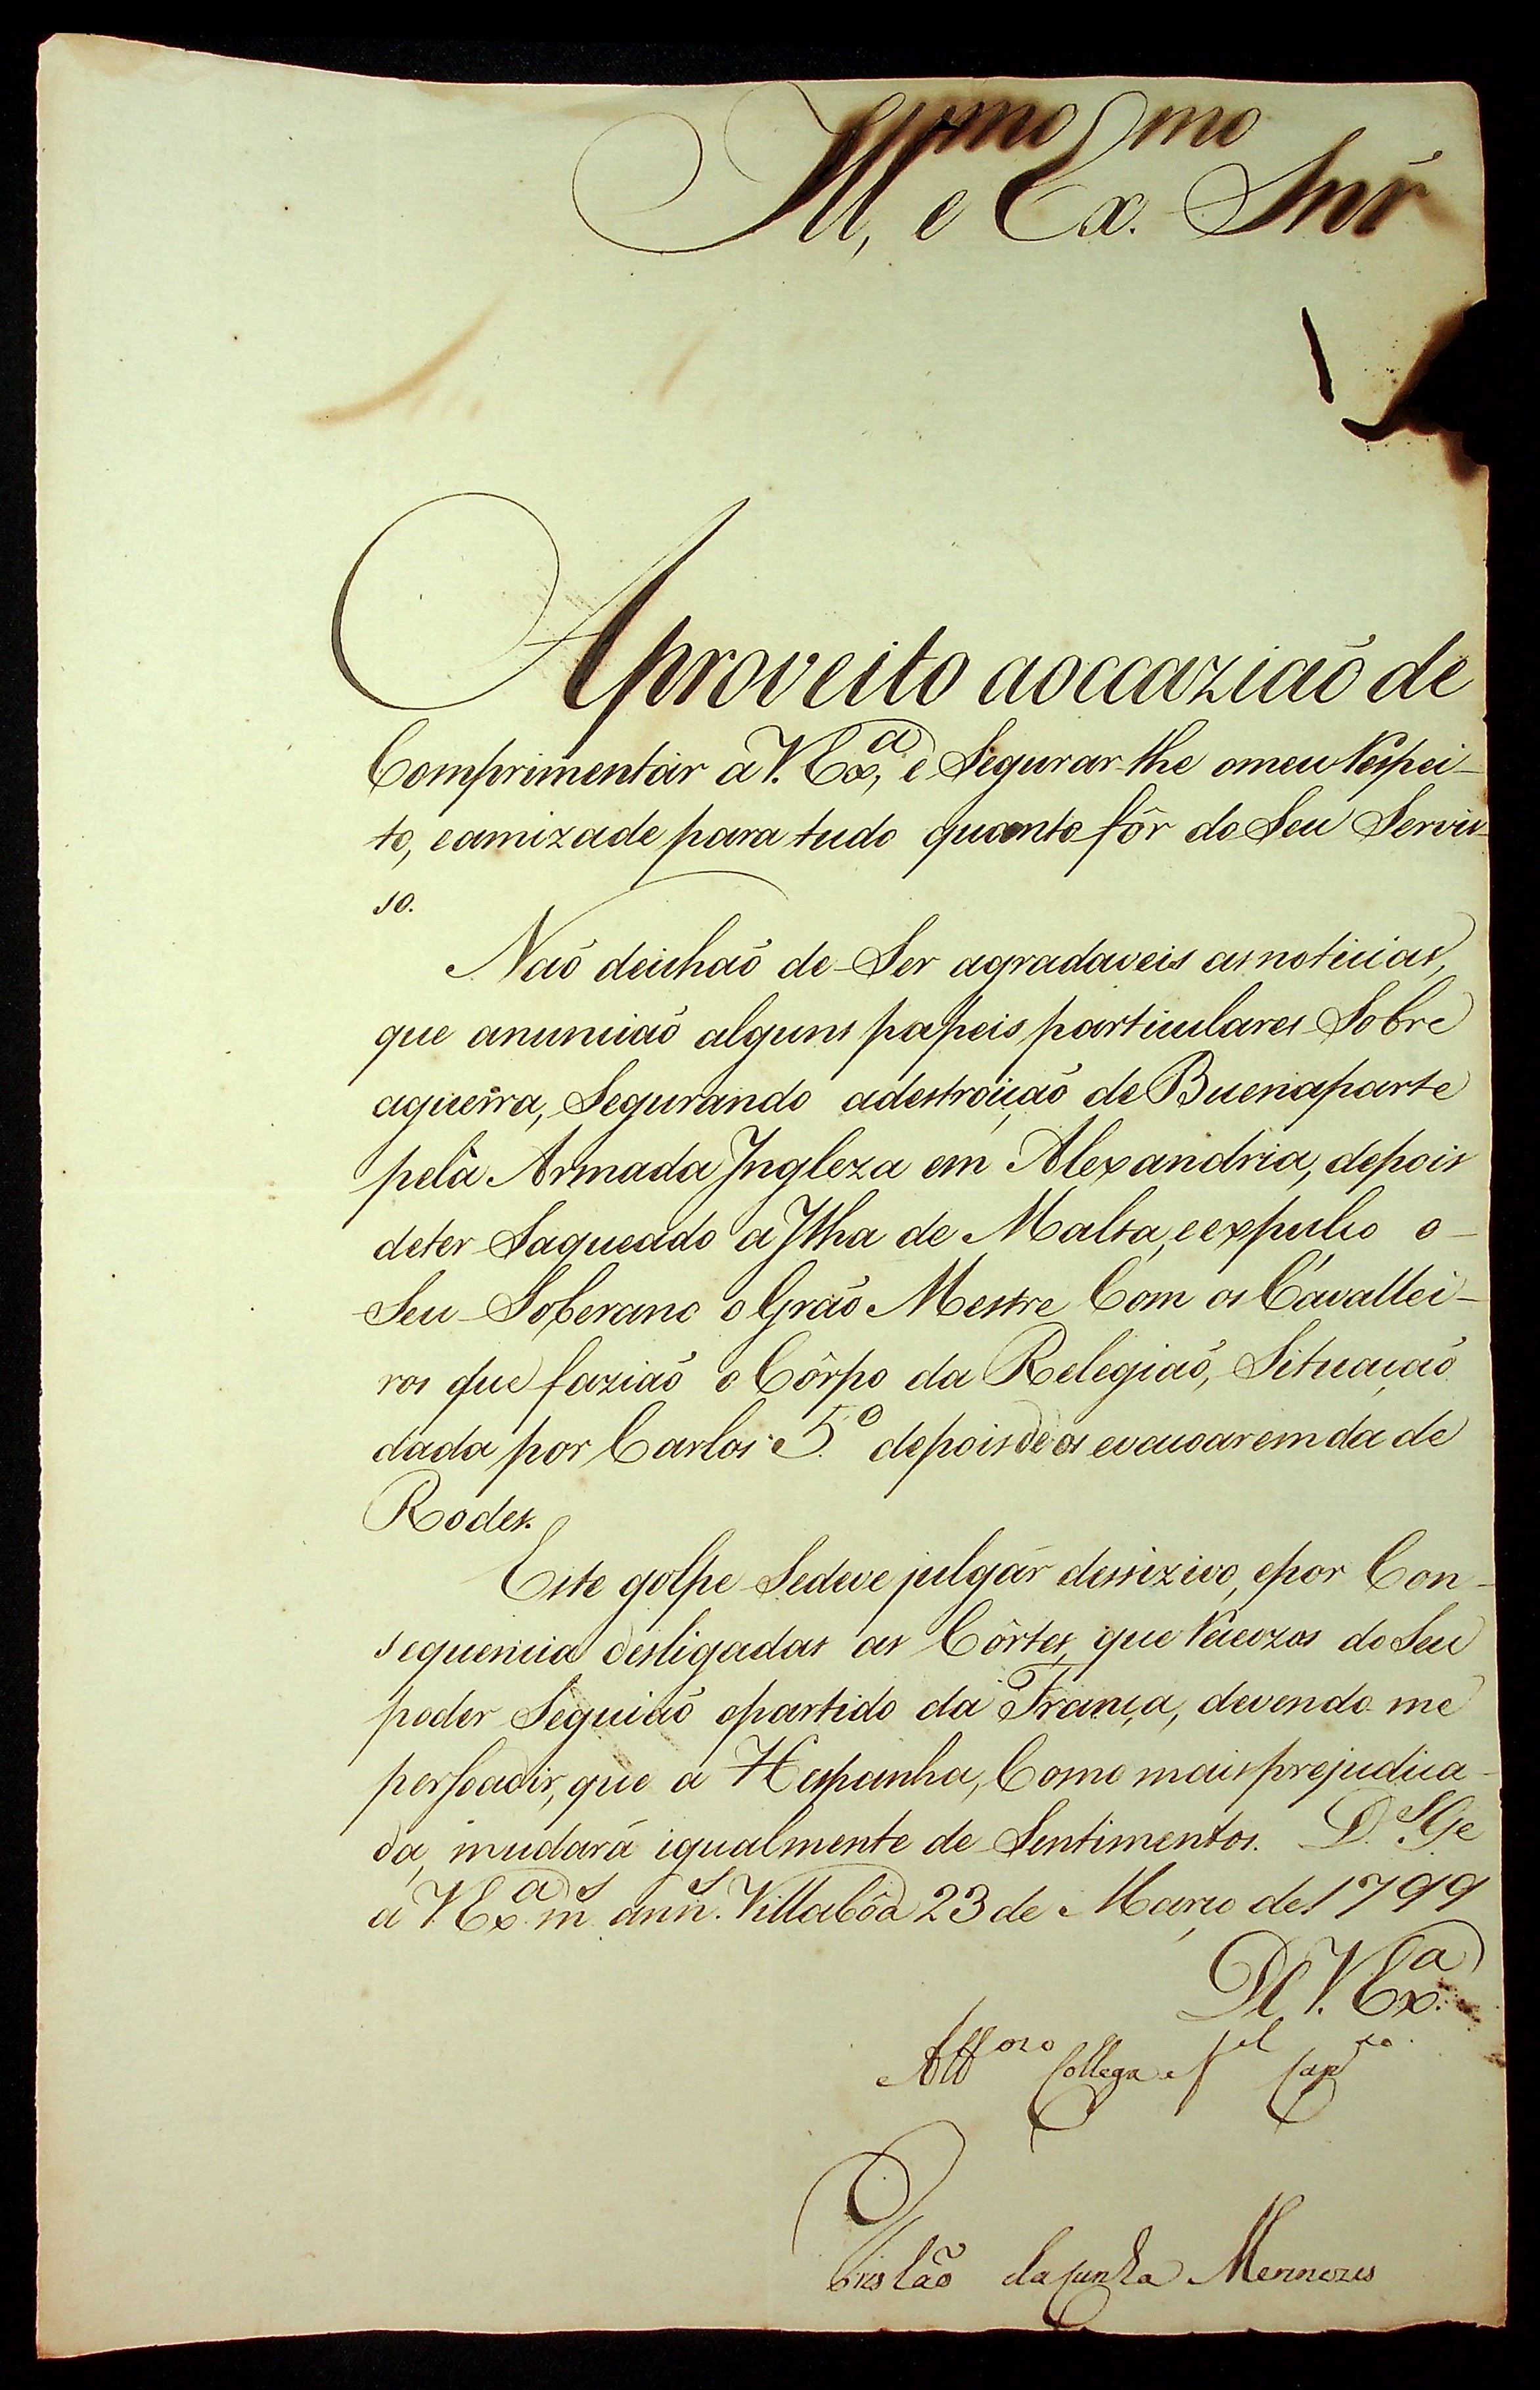 Ill.mo, e Ex.mo Snr
Aproveito aoccaziaõ de
Comprimentár a V. Ex.a, e Segurar-lhe omeu Respei-
to, eamizade para tudo quanto fôr do Seu Servi-
so.
Naõ deichaõ de Ser agradaveis asnoticias,
que anunciaõ alguns papeis particulares Sobre
aguerra, Segurando adestroiçaõ de Buenaparte
pela Armada Ingleza em Alexandria, depois
deter Saqueado a Ilha de Malta, eexpulço o
Seu Soberano o Graõ Mestre Com os Cavallei-
ros que faziaõ o Côrpo da Relegiaõ, Situaçaõ
dada por Carlos 5.º depois de os evacoarem da de
Rodes.
Este golpe Sedeve julgár dessizivo, epor Con-
sequencia desligadas as Côrtes, que Receozas do Seu
poder Seguiaõ opartido da França, devendo me
persoadir, que a Hespanha, Como mais prejudica-
da, mudará igualmente de Sentimentos. D.s G.e
a V. Ex.a m.s ann.s Villabôa 23 de Março de 1799
De V. Ex.a
Att.o Collega e f.el Cap.
Tristão da Cunha Mennezes